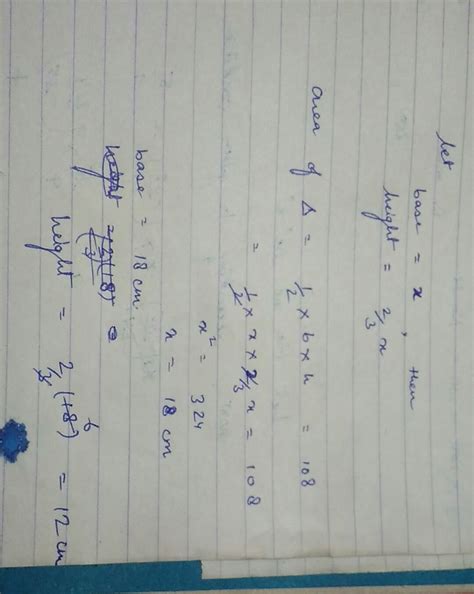 let base = x, then
height = 2/3 x
area of Δ = 1/2 × b × h = 108
= 1/2 × x × 2/3 x = 108
x² = 324
x = 18 cm
base = 18 cm
height = 2/3 (18)
height = 2/3 (18) 6 = 12 cm